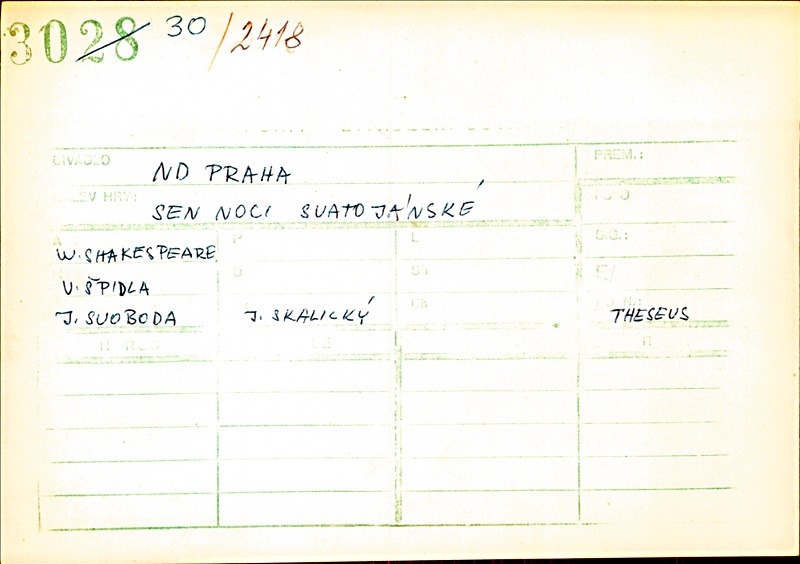 3028 30 / 2418
DIVADLO ND PRAHA PREM.:
SEN NOCI SVATOJÁNSKÉ
A W. SHAKESPEARE P L SIG.:
V. ŠPIDLA
J. SVOBODA J. SKALICKÝ Ch THESEUS